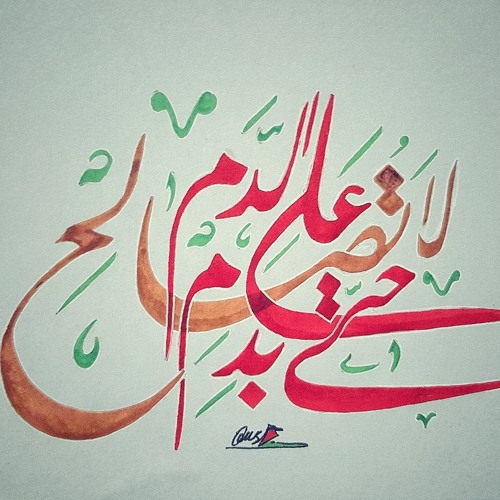 لَا تُصَالِحْ
عَلَى الدَّمِ
حَتَّى بِدَمِ